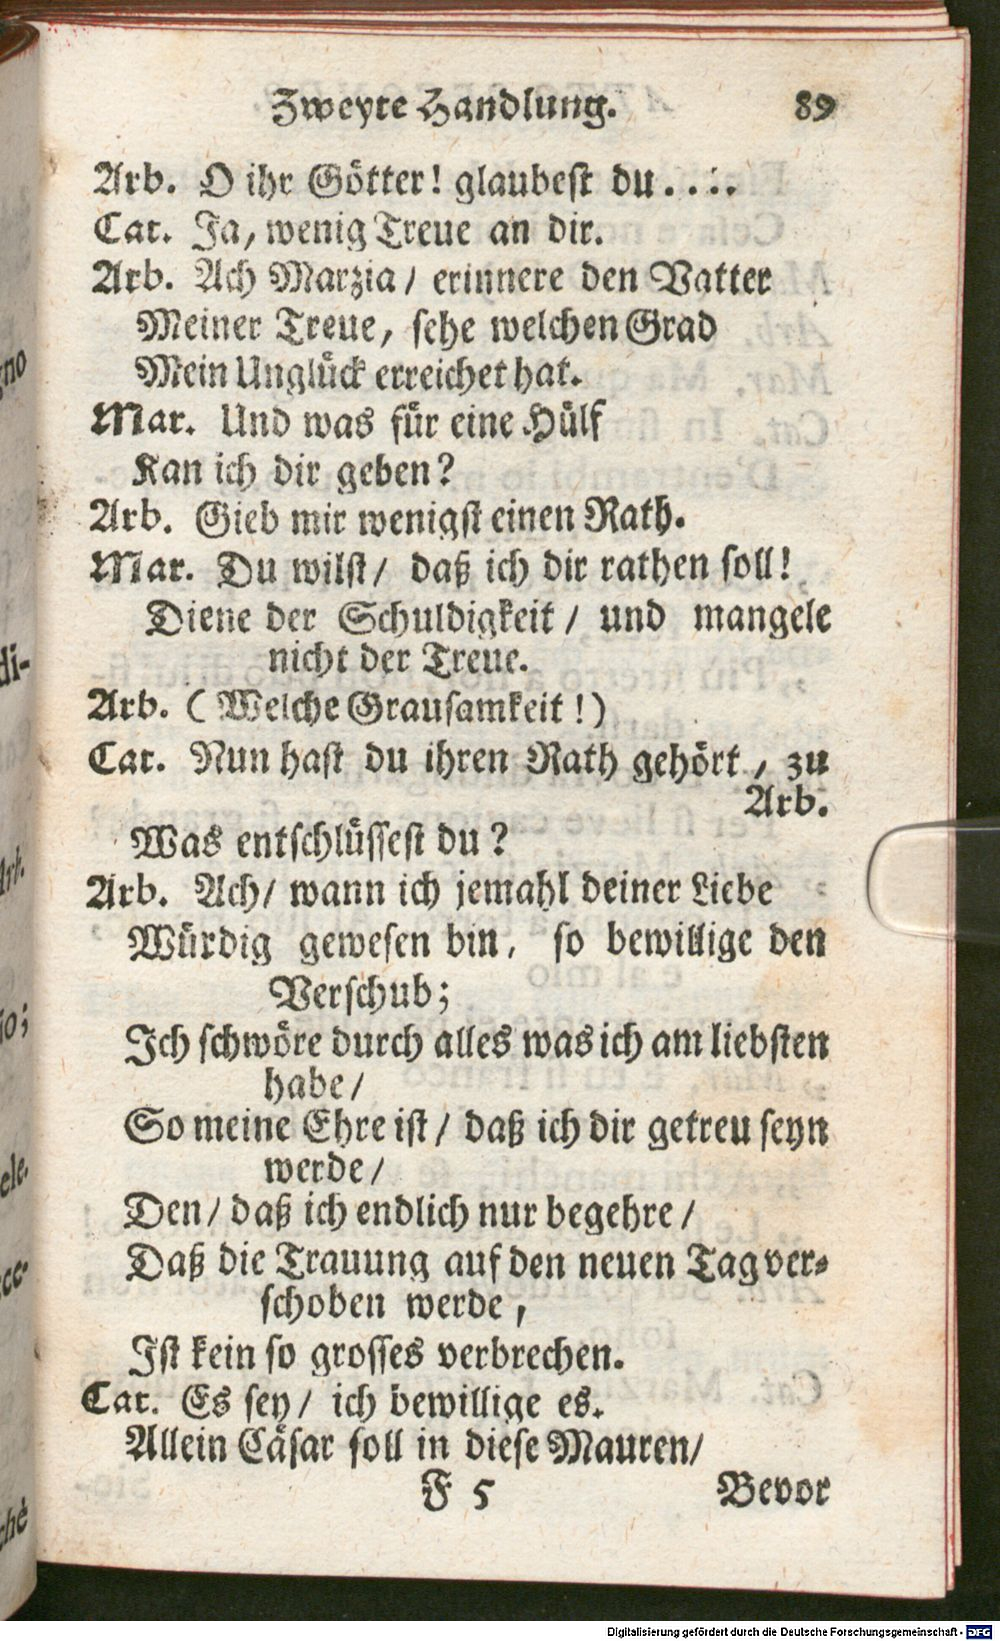 Zweyte Handlung. 89
Arb. O ihr Götter! glaubest du....
Cat. Ja, wenig Treue an dir.
Arb. Ach Marzia/ erinnere den Vatter
Meiner Treue, sehe welchen Grad
Mein Unglück erreichet hat.
Mar. Und was für eine Hülf
Kan ich dir geben?
Arb. Gieb mir wenigst einen Rath.
Mar. Du wilst/ daß ich dir rathen soll!
Diene der Schuldigkeit/ und mangele
nicht der Treue.
Arb. (Welche Grausamkeit!)
Cat. Nun hast du ihren Rath gehört, zu
Arb.
Was entschlüssest du?
Arb. Ach/ wann ich jemahl deiner Liebe
Würdig gewesen bin, so bewillige den
Verschub;
Ich schwöre durch alles was ich am liebsten
habe/
So meine Ehre ist/ daß ich dir getreu seyn
werde/
Den/ daß ich endlich nur begehre/
Daß die Trauung auf den neuen Tag ver-
schoben werde,
Ist kein so grosses verbrechen.
Cat. Es sey/ ich bewillige es.
Allein Cäsar soll in diese Mauren/
F 5 Bevor
Digitalisierung gefördert durch die Deutsche Forschungsgemeinschaft - DFG